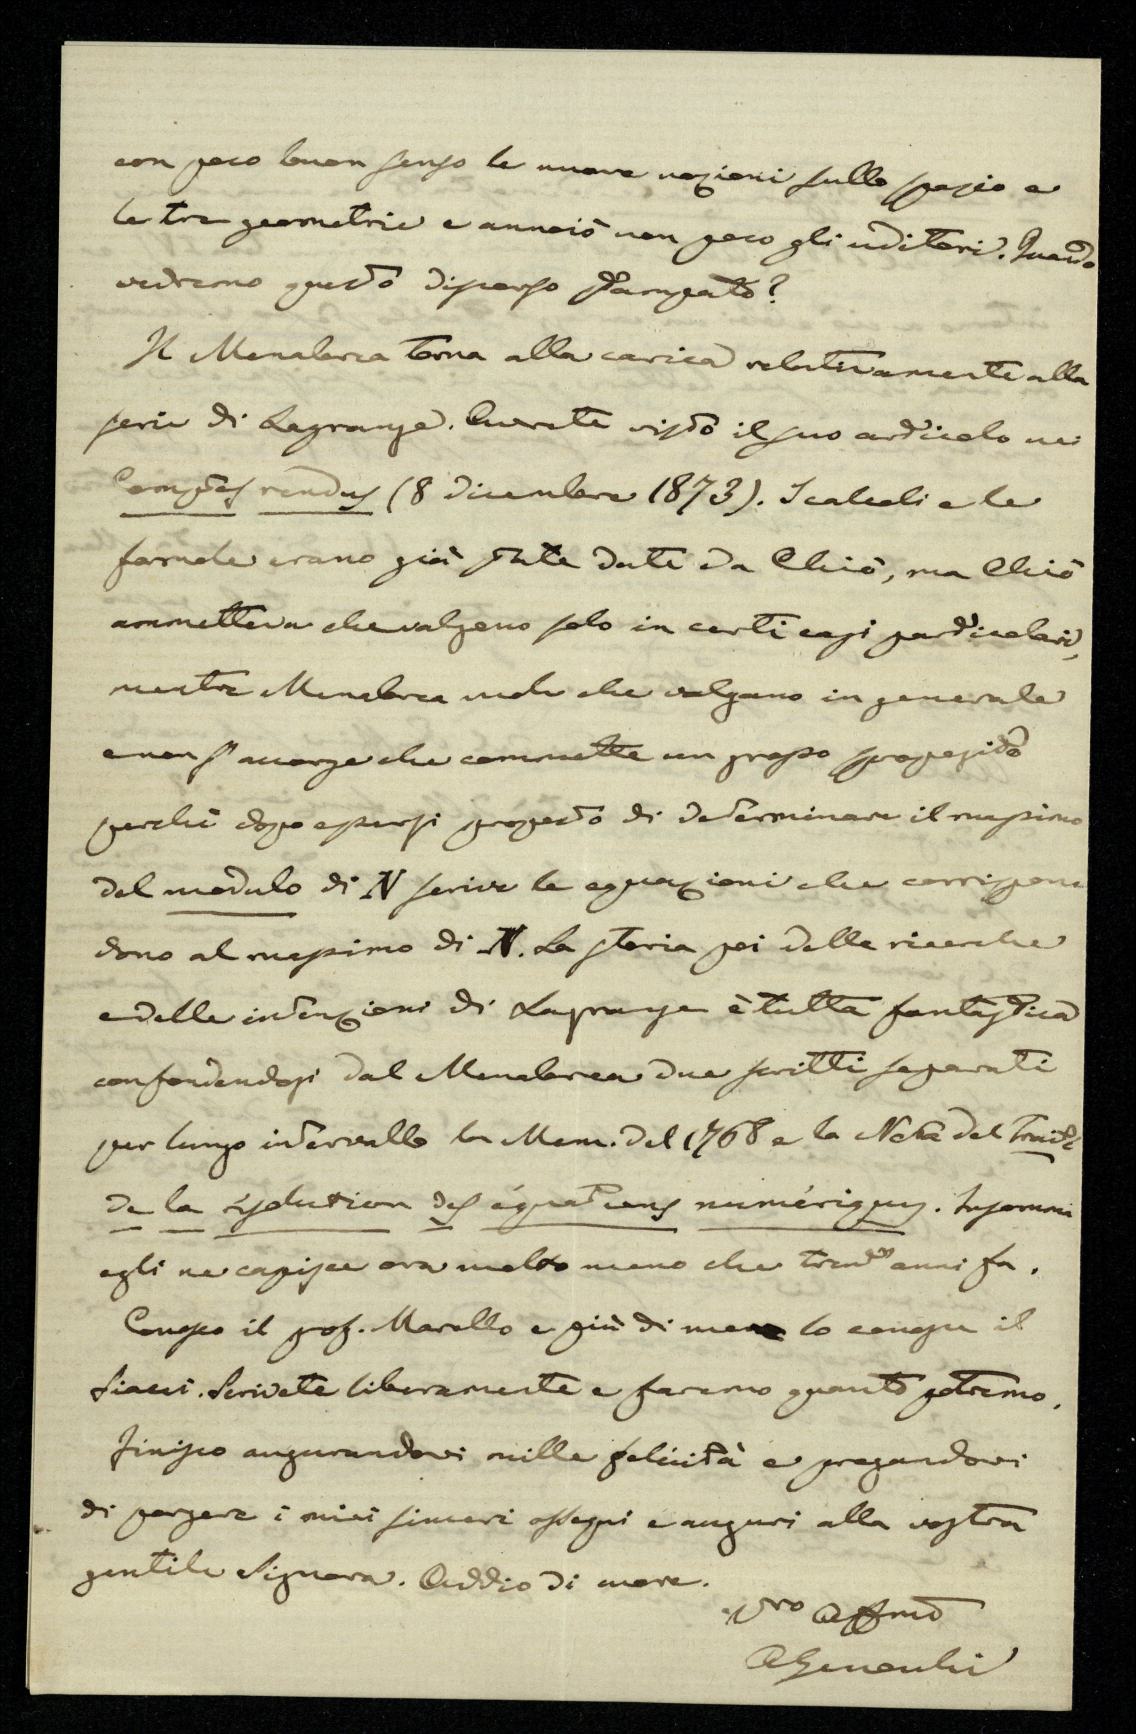 con poco buon senso le nuove nozioni sullo spazio e
le tre geometrie e annoiò non poco gli uditori. Quando
vedremo questo discorso stampato?
Il Menabrea torna alla carica relativamente alla
serie di Lagrange. Avrete visto il suo articolo nei
Comptes rendus (8 dicembre 1873). I calcoli e le
formole erano già state date da Chiò, ma Chiò
ammetteva che valgono solo in certi casi particolari,
mentre Menabrea vuole che valgano in generale
e non s'accorge che commette un grosso sproposito
perchè dopo essersi proposto di determinare il massimo
del modulo di N scrive le equazioni che corrispon
dono al massimo di N. La storia poi delle ricerche
e delle intenzioni di Lagrange è tutta fantastica
confondendosi dal Menabrea due scritti separati
per lungo intervallo la Mem. del 1768 e la Nota del Traité
de la résolution des équations numériques. Insomma
egli ne capisce ora molto meno che trent' anni fa.
Conosco il prof. Marello e più di me lo conosce il
Siacci. Scrivete liberamente e faremo quanto potremo.
Finisco augurandovi mille felicità e pregandovi
di porgere i miei sinceri ossequi e auguri alla vostra
gentile Signora. Addio di cuore.
Vro Affmo
AGenocchi